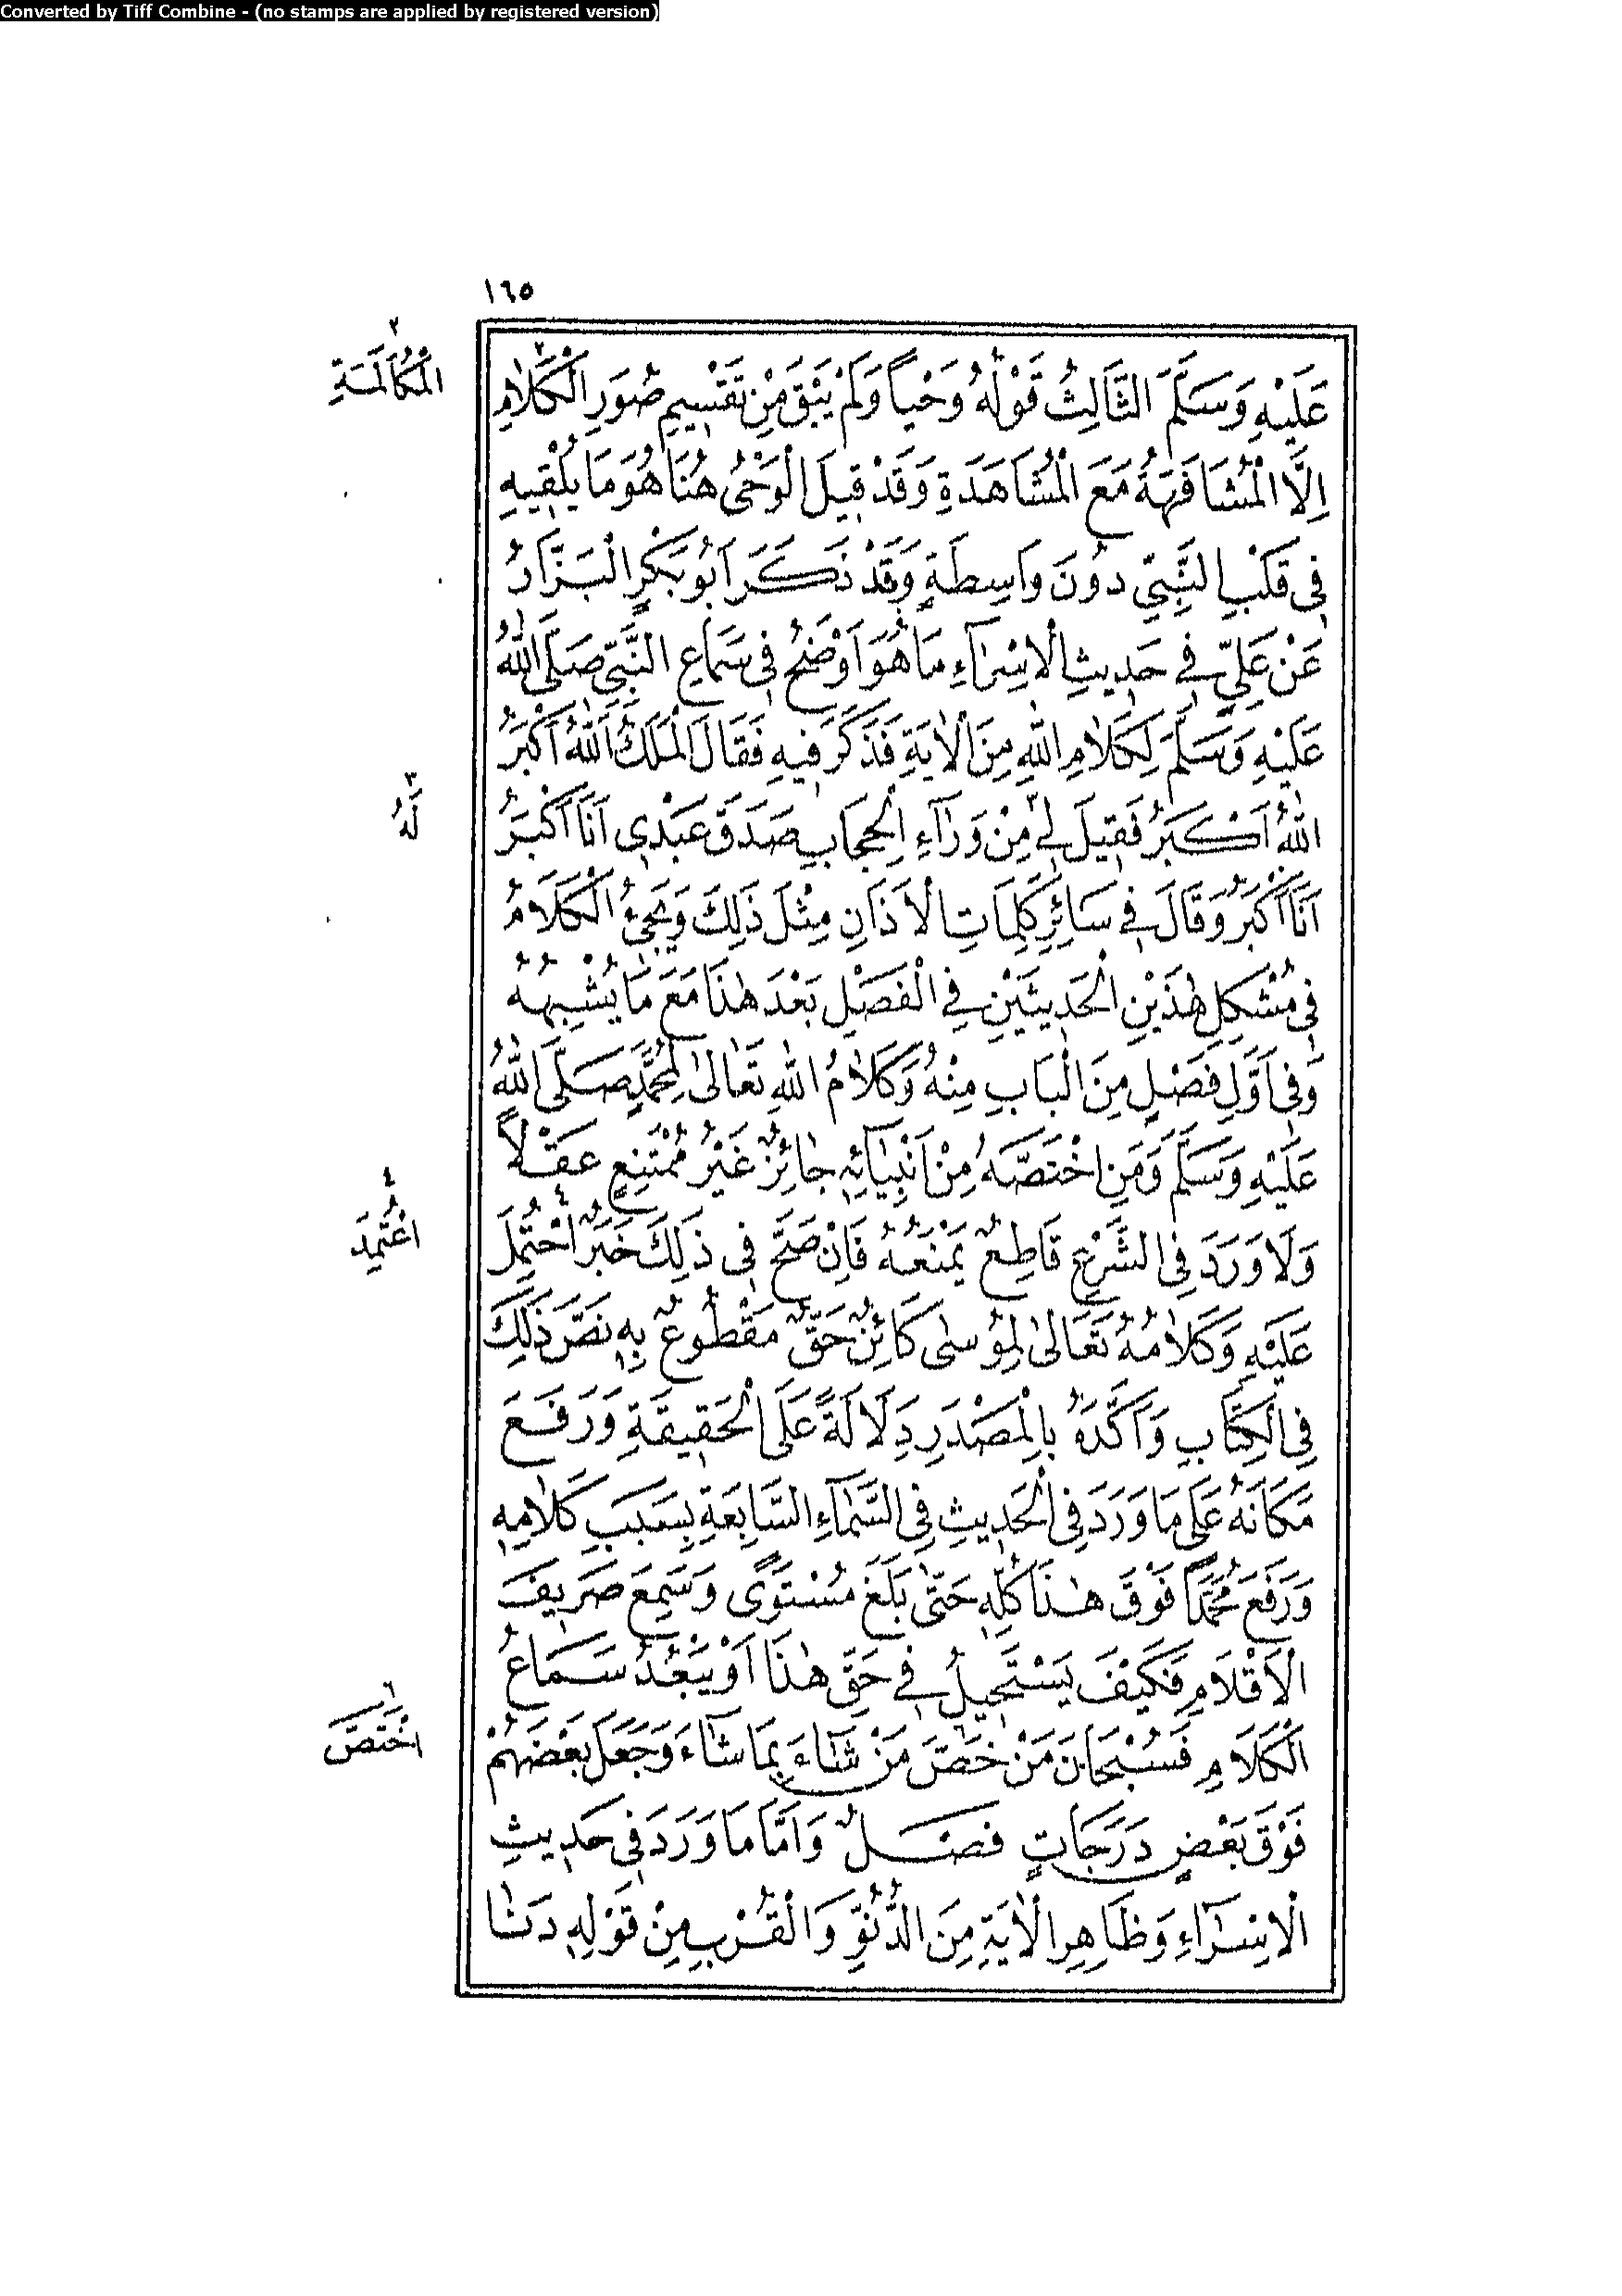 Converted by Tiff Combine - (no stamps are applied by registered version)
١٦٥
عَلَيْهِ وَسَلَّمَ الثَّالِثُ قَوْلُهُ وَحْياً وَلَمْ يَبْقَ مِنْ تَقْسِيمِ صُوَرِ الْكَلَامِ
٢
الْمُكَالَمَةِ
اِلَّا الْمُشَافَهَةُ مَعَ الْمُشَاهَدَةِ وَقَدْ قِيلَ الْوَحْىُ هُنَا هُوَ مَا يُلْقِيهِ
فِى قَلْبِ النَّبِىِّ دُونَ وَاسِطَةٍ وَقَدْ ذَكَرَ اَبُو بَكْرٍ الْبَزَّارُ
عَنْ عَلِىٍّ فِى حَدِيثِ الْاِسْرَآءِ مَا هُوَ اَوْضَحُ فِى سَمَاعِ النَّبِىِّ صَلَّى اللّٰهُ
عَلَيْهِ وَسَلَّمَ لِكَلَامِ اللّٰهِ مِنَ الْاٰيَةِ فَذَكَرَ فِيهِ فَقَالَ الْمَلَكُ اَللّٰهُ اَكْبَرُ
اللّٰهُ اَكْبَرُ فَقِيلَ لِى مِنْ وَرَآءِ الْحِجَابِ صَدَقَ عَبْدِى اَنَا اَكْبَرُ
٣
لَهُ
اَنَا اَكْبَرُ وَقَالَ فِى سَائِرِ كَلِمَاتِ الْاَذَانِ مِثْلَ ذَلِكَ وَيَجِىْءُ الْكَلَامُ
فِى مُشْكِلِ هٰذَيْنِ الْحَدِيثَيْنِ فِى الْفَصْلِ بَعْدَ هٰذَا مَعَ مَا يُشْبِهُهُ
وَفِى اَوَّلِ فَصْلٍ مِنَ الْبَابِ مِنْهُ وَكَلَامُ اللّٰهِ تَعَالٰى لِمُحَمَّدٍ صَلَّى اللّٰهُ
عَلَيْهِ وَسَلَّمَ وَمَنِ اخْتَصَّهُ مِنْ اَنْبِيَآئِهِ جَائِزٌ غَيْرُ مُمْتَنِعٍ عَقْلاً
وَلَا وَرَدَ فِى الشَّرْعِ قَاطِعٌ يَمْنَعُهُ فَاِنْ صَحَّ فِى ذَلِكَ خَبَرٌ اُحْتُمِلَ
٤
اعْتُمِدَ
عَلَيْهِ وَكَلَامُهُ تَعَالٰى لِمُوسٰى كَائِنٌ حَقٌّ مَقْطُوعٌ بِهِ نَصَّ ذَلِكَ
فِى الْكِتَابِ وَاَكَّدَهُ بِالْمَصْدَرِ دِلَالَةً عَلَى الْحَقِيقَةِ وَرَفَعَ
مَكَانَهُ عَلَى مَا وَرَدَ فِى الْحَدِيثِ فِى السَّمَآءِ السَّابِعَةِ بِسَبَبِ كَلَامِهِ
وَرَفَعَ مُحَمَّداً فَوْقَ هٰذَا كُلِّهِ حَتّٰى بَلَغَ مُسْتَوًى وَسَمِعَ صَرِيفَ
الْاَقْلَامِ فَكَيْفَ يَسْتَحِيلُ فِى حَقِّ هٰذَا اَوْ يَبْعُدُ سَمَاعُ
الْكَلَامِ فَسُبْحَانَ مَنْ خَصَّ مَنْ شَآءَ بِمَا شَآءَ وَجَعَلَ بَعْضَهُمْ
٦
اخْتَصَّ
فَوْقَ بَعْضٍ دَرَجَاتٍ فَصْلٌ وَاَمَّا مَا وَرَدَ فِى حَدِيثِ
الْاِسْرَآءِ وَظَاهِرِ الْاٰيَةِ مِنَ الدُّنُوِّ وَالْقُرْبِ مِنْ قَوْلِهِ دَنَا